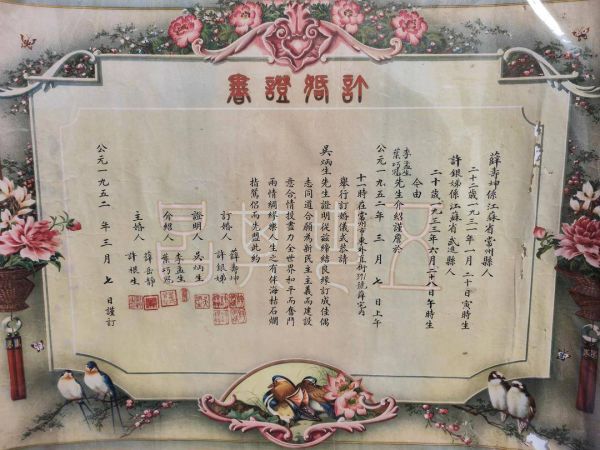 訂婚證書
薛壽坤係江蘇省常州縣人
二十二歲一九三一年一月二十日寅時生
許銀娣係江蘇省武進縣人
二十歲一九三三年六月二十八日午時生
今由
李孟生
葉巧
先生介紹謹詹於
公元一九五二年三月七日上午
十一時在常州市東外直街371號薛宅內
舉行訂婚儀式恭請
吳炳生先生證明從茲締結良緣訂成佳偶
志同道合願為新民主主義而建設
意合情投盡力全世界和平而奮鬥
兩情綢繆樂人生之有伴海枯石爛
指鴛侶而先盟此約
訂婚人
薛壽坤
許銀娣
證明人 吳炳生
介紹人
李孟生
葉巧
主婚人
薛岳靜
許根生
公元一九五二年三月七日謹訂